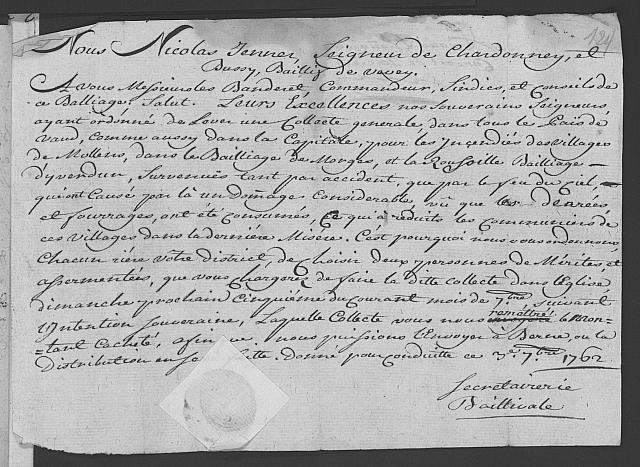 124
Nous Nicolas Jenner, Seigneur de Chardonney, et
Bussy, Baillif de vevey.
A vous Messieurs les Banderet, Commandeur, Sindics, et Conseils de
ce Balliage, Salut. Leurs Excellences nos Souverains Seigneurs,
ayant ordonné de Lever une Collecte generale, dans tous le Païs de
vaud, comme aussy dans la Capitale, pour les Jnçendiés des villages
de Mollens, dans le Bailliage de Morges, et la Roussille Bailliage
d'yverdun, survenües tant par accident, que par le feu du Ciel,
qui ont Causé par là un Domage Considerable, vû que les dearées,
et fourrages, ont été consumés, Ce qui a réduits les communiers de
ces villages dans la derniére Misére. C'est pourquoi nous vous ordonnons,
Chacun riére vôtre district, de choisir deux personnes de Mérites, et
assermentées, que vous chargerés de faire la ditte collecte dans l'Eglise
dimanche prochain Cinquiéme du Courant mois de 7bre, suivant
l'Jntention souveraine, Laquelle Collecte vous nous remettrés le Mon-
tant Cacheté, afin que nous puissions l'Envoyer à Berne, ou la
Distribution en Donné pour conduitte ce 3e 7bre 1762
Secretairerie
Baillivale